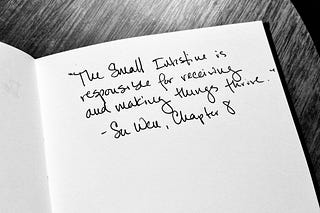 "The Small Intestine is
responsible for receiving
and making things thrive."
- Su Wen, Chapter 8